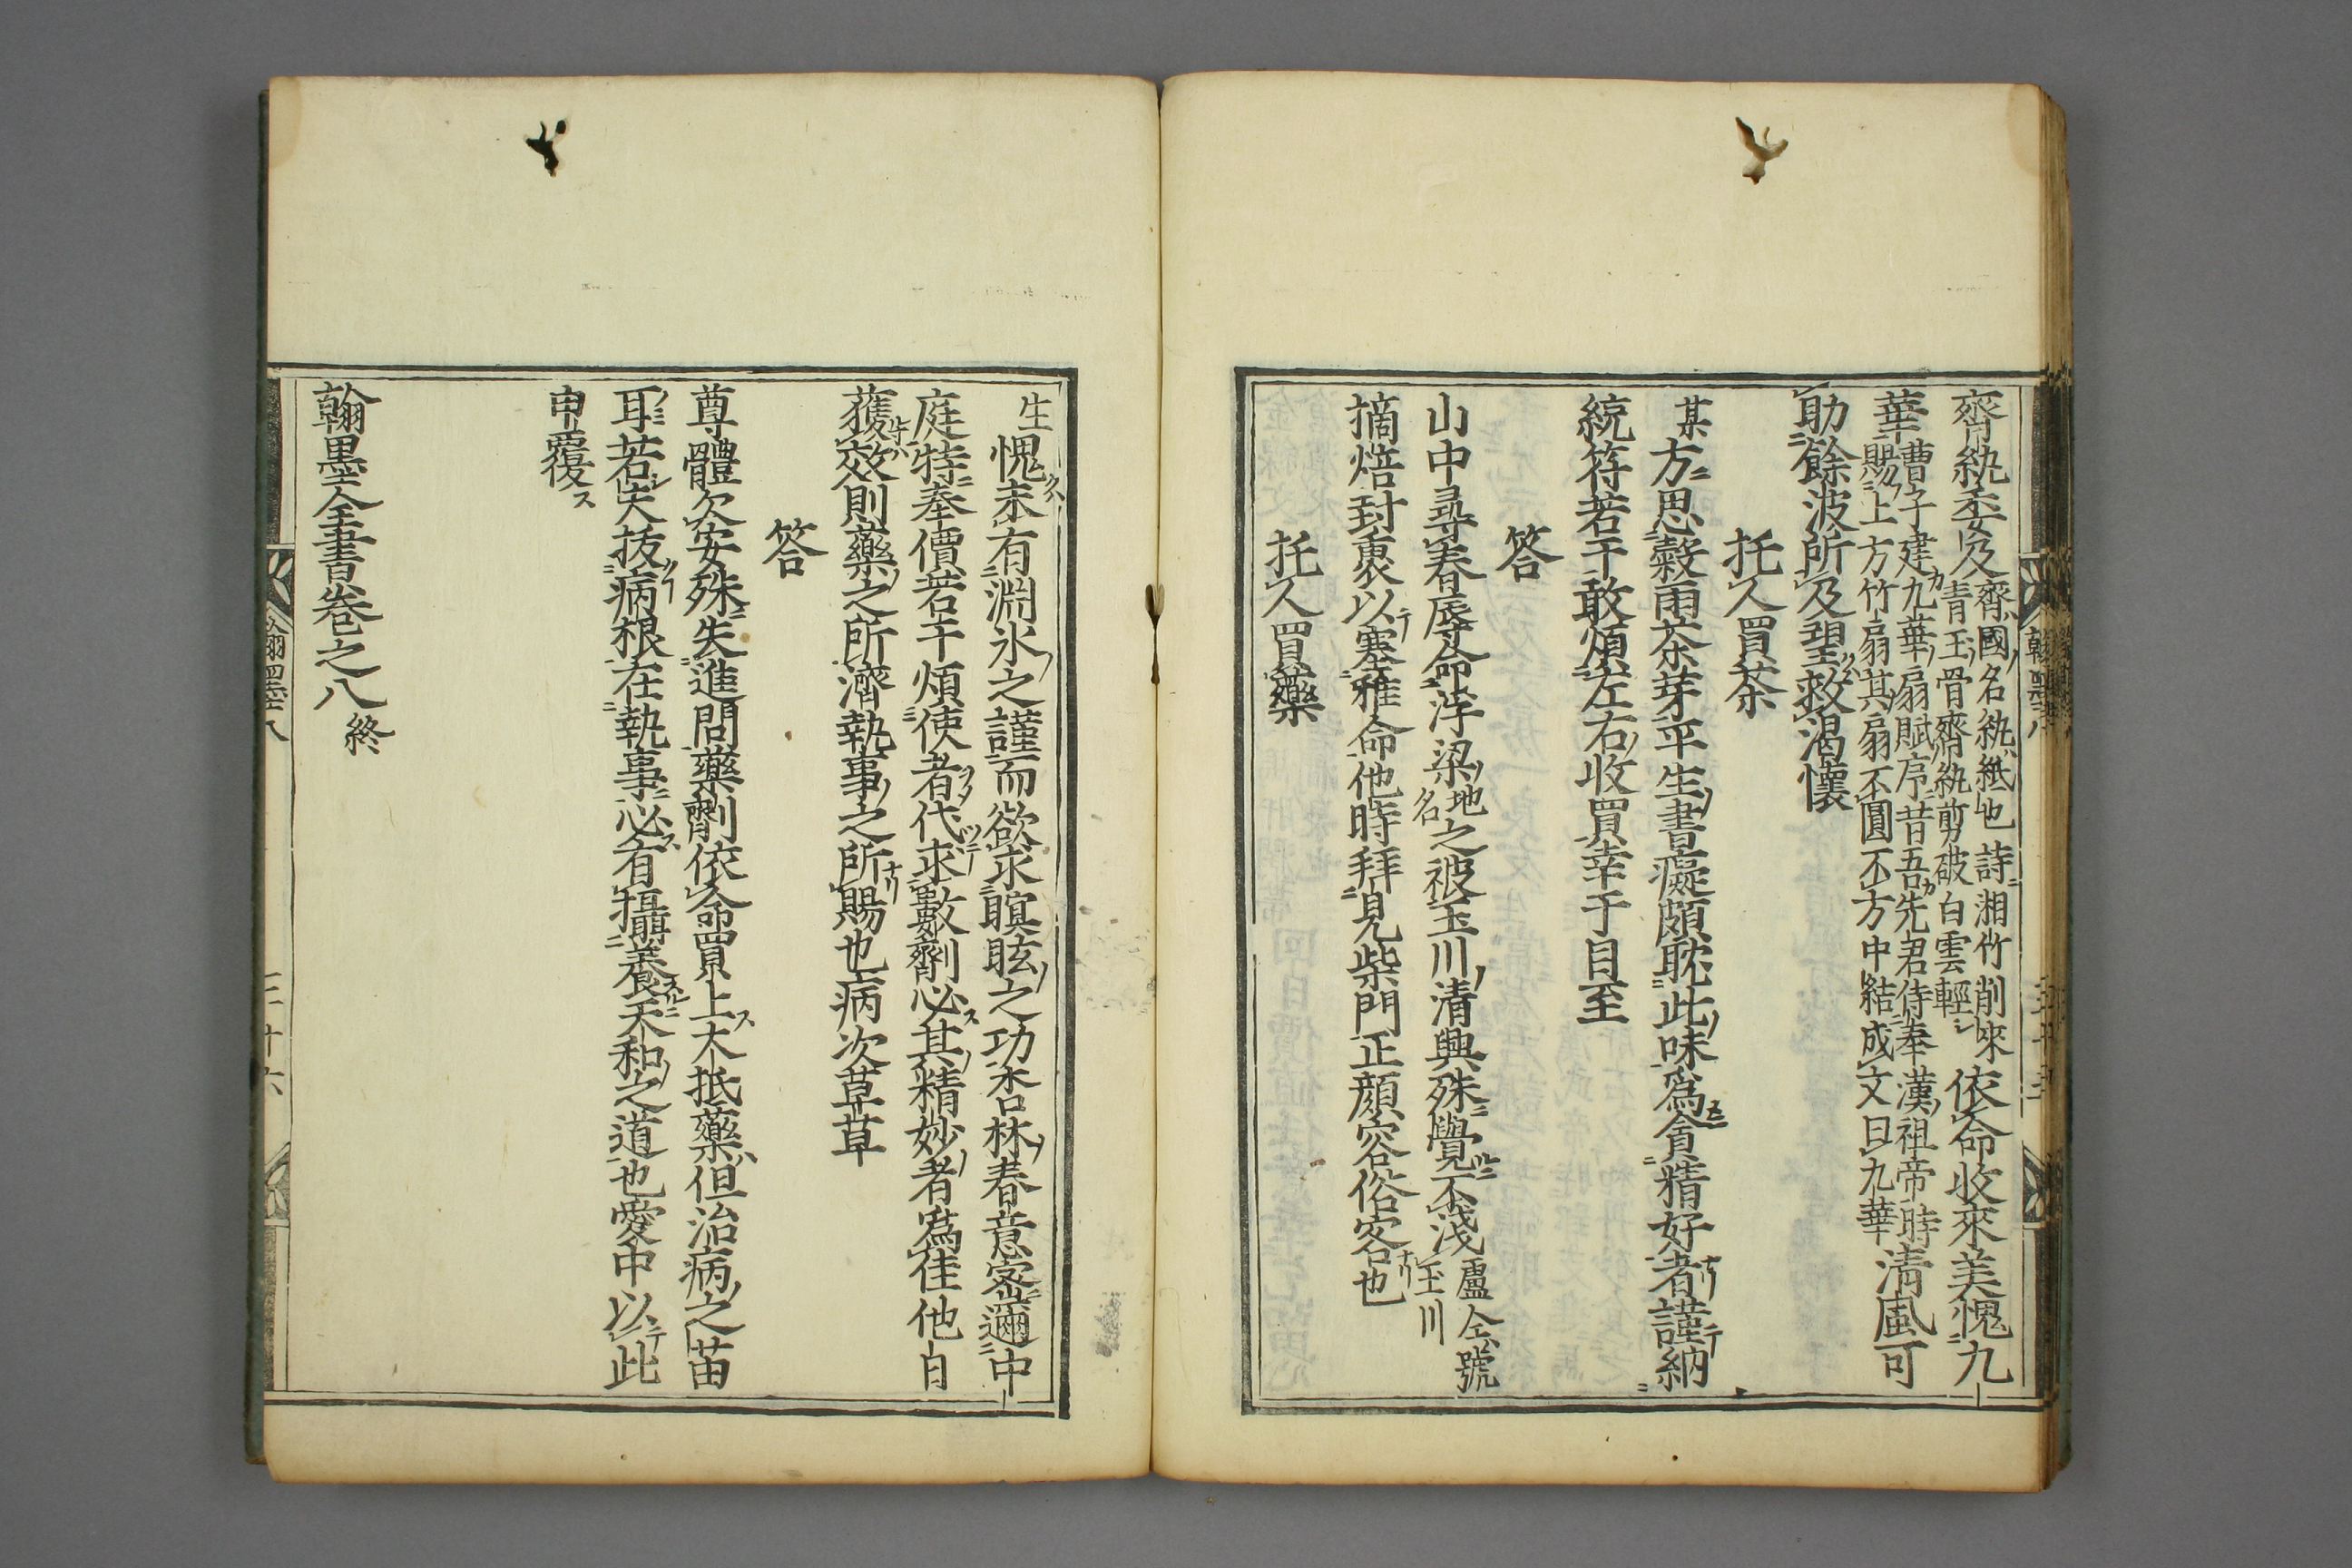 齊紈委及齊國名紈紙也詩湘竹削來青玉骨齊紈剪破白雲輕依命收來美愧九
華曹子建九華扇賦序昔吾先君侍奉漢祖帝時賜上方竹扇其扇不圓不方中結成文曰九華清風可
助餘波所及望救渴懷
托人買茶
某方思穀雨茶芽平生書癡頗耽此味爲貪精好者謹納
統符若干敢煩左右收買幸于目至
答
山中尋春辱命浮梁地名之被玉川清興殊覺不淺盧仝號玉川
摘焙封裹以塞雅命他時拜見柴門正顔容俗客也
托人買藥
生愧未有淵氷之謹而欲求瞑眩之功杏林春意密邇中
庭特奉價若干煩使者代求數劑必其精妙者爲佳他日
獲效則藥之所濟執事之所賜也病次草草
答
尊體欠安殊失進問藥劑依命買上大抵藥但治病之苗
耳若夫拔病根在執事必有攝養天和之道也愛中以此
申覆
翰墨全書卷之八終
翰墨八